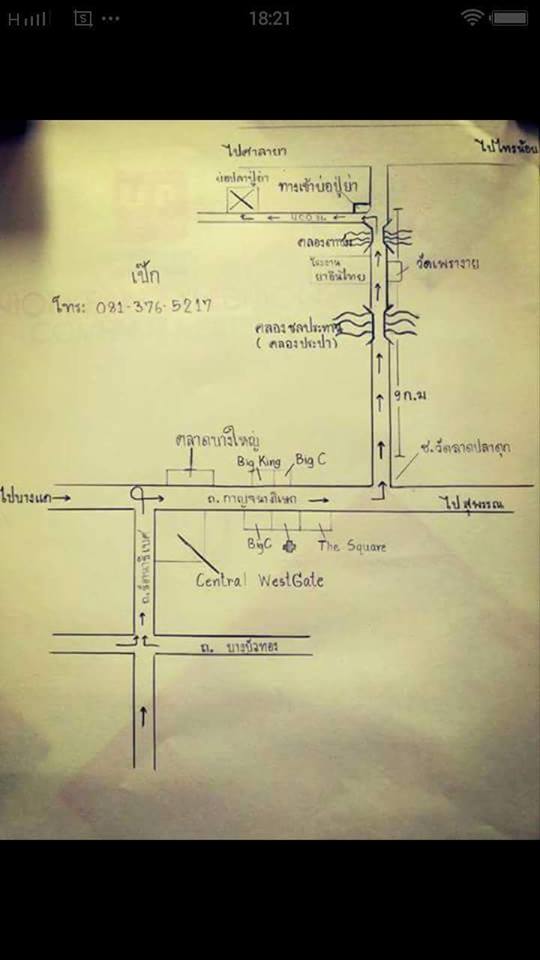 18:21
ไปศาลายา
ไปไทรน้อย
บ่อปลาปู่ย่า
ทางเข้าบ่อปู่ย่า
คลองตาชม
โรงงาน
ยาอินไทย
วัดเพรางาย
เป๊ก
โทร: 081-376-5217
คลองชลประทาน
(คลองประปา)
9 ก.ม
ตลาดบางใหญ่
Big King
Big C
ซ.วัดลาดปลาดุก
ไปบางแค
ถ.กาญจนาภิเษก
ไปสุพรรณ
BigC
The Square
ถ.รัตนาธิเบศ
Central WestGate
ถ. บางบัวทอง